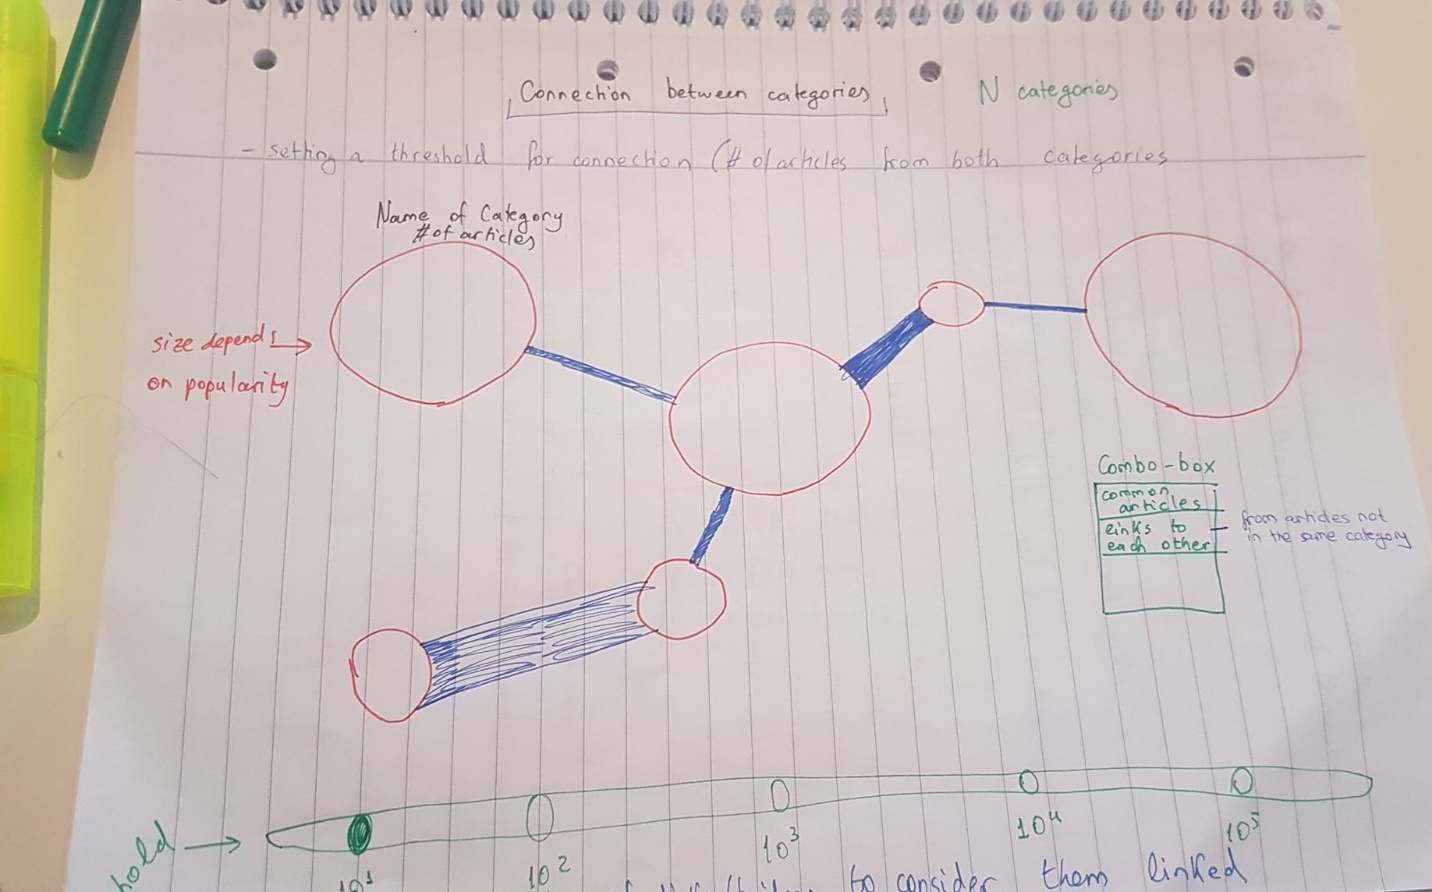 Connection between categories
N categories
- setting a threshold for connection (# of articles from both categories
Name of Category
# of articles
size depends
on popularity
Combo-box
common
articles
links to
each other
from articles not
in the same category
hold
10¹
10²
10³
10⁴
10⁵
to consider them linked